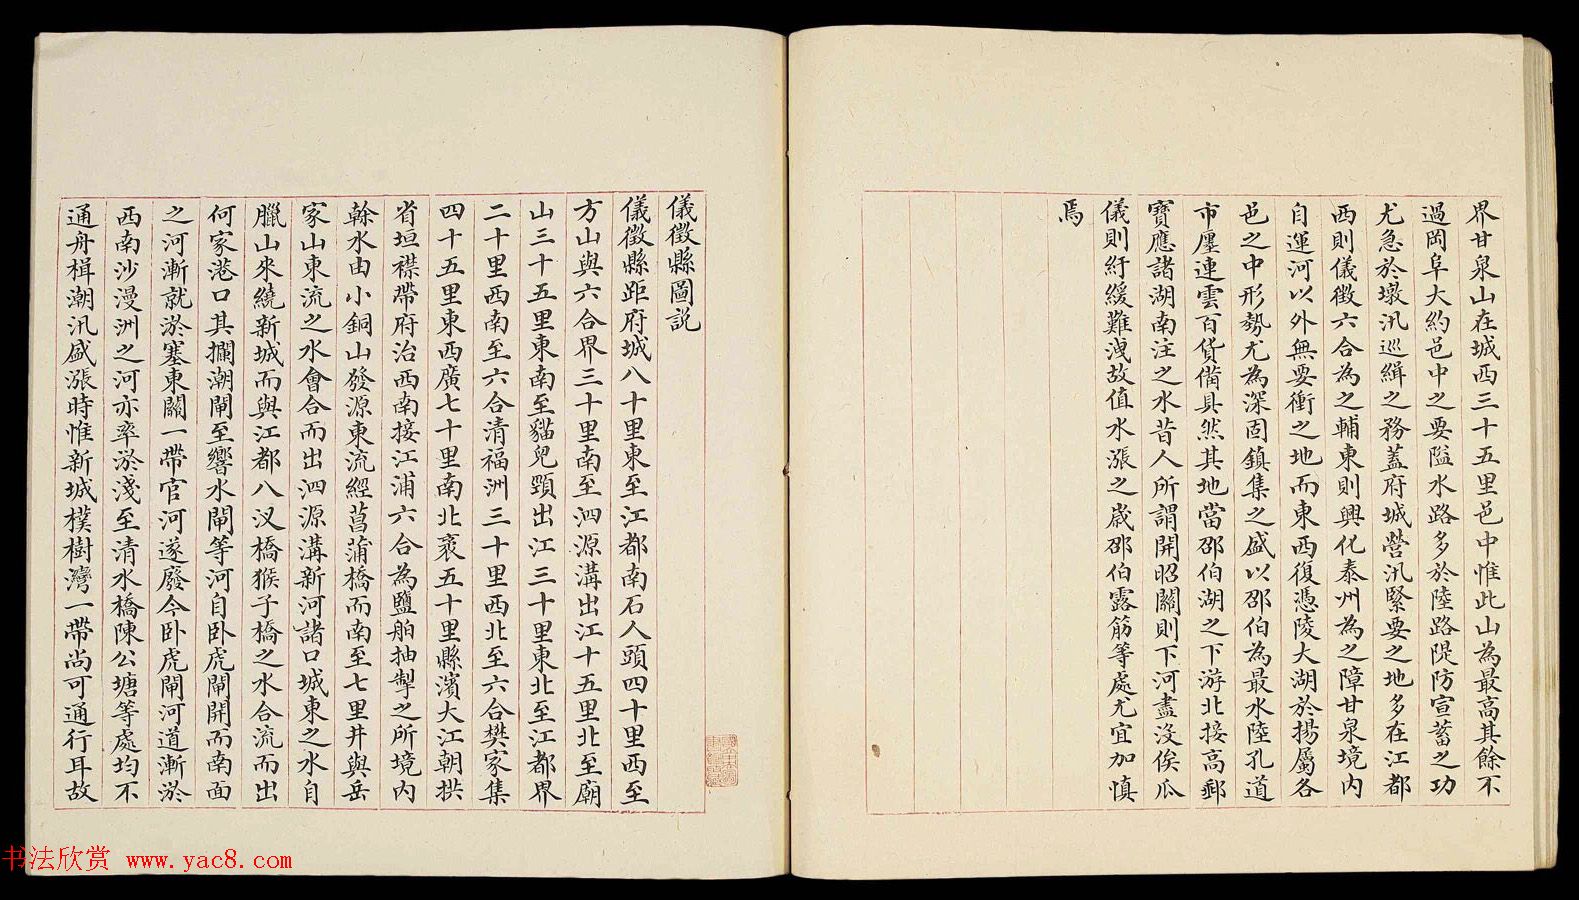 界甘泉山在城西三十五里邑中惟此山為最高其餘不
過岡阜大約邑中之要隘水路多於陸路隄防宣蓄之功
尤急於墩汛巡緝之務蓋府城營汛緊要之地多在江都
西則儀徵六合為之輔東則興化泰州為之障甘泉境內
自運河以外無要衝之地而東西復憑陵大湖於揚屬各
邑之中形勢尤為深固鎮集之盛以邵伯為最水陸孔道
市廛連雲百貨備具然其地當邵伯湖之下游北接高郵
寶應諸湖南注之水昔人所謂開昭關則下河盡沒俟瓜
儀則紓緩難洩故值水漲之歲邵伯露筋等處尤宜加慎
焉
儀徵縣圖說
儀徵縣距府城八十里東至江都南石人頭四十里西至
方山與六合界三十里南至泗源溝出江十五里北至廟
山三十五里東南至貓兒頸出江三十里東北至江都界
二十里西南至六合清福洲三十里西北至六合樊家集
四十五里東西廣七十里南北袤五十里縣濱大江朝拱
省垣襟帶府治西南接江浦六合為鹽船抽掣之所境內
榦水由小銅山發源東流經菖蒲橋而南至七里井與岳
家山東流之水會合而出泗源溝新河諸口城東之水自
臘山來繞新城而與江都八汊橋猴子橋之水合流而出
何家港口其攔潮閘至響水閘等河自臥虎閘開而南面
之河漸就淤塞東關一帶官河遂廢今臥虎閘河道漸淤
西南沙漫洲之河亦率淤淺至清水橋陳公塘等處均不
通舟楫潮汛盛漲時惟新城樸樹灣一帶尚可通行耳故
书法欣赏 www.yac8.com